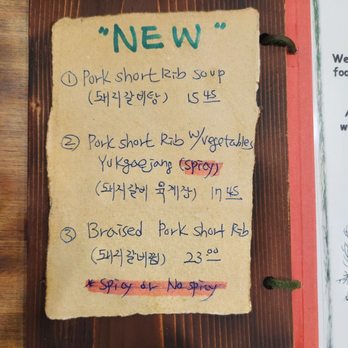 "NEW"
① Pork short Rib soup
(돼지갈비탕) 15 45
② Pork short Rib w/vegetables
Yukgaejang (spicy)
(돼지갈비 육계장) 17 45
③ Braised Pork short Rib
(돼지갈비찜) 23 00
* Spicy or No spicy
We
foo
A